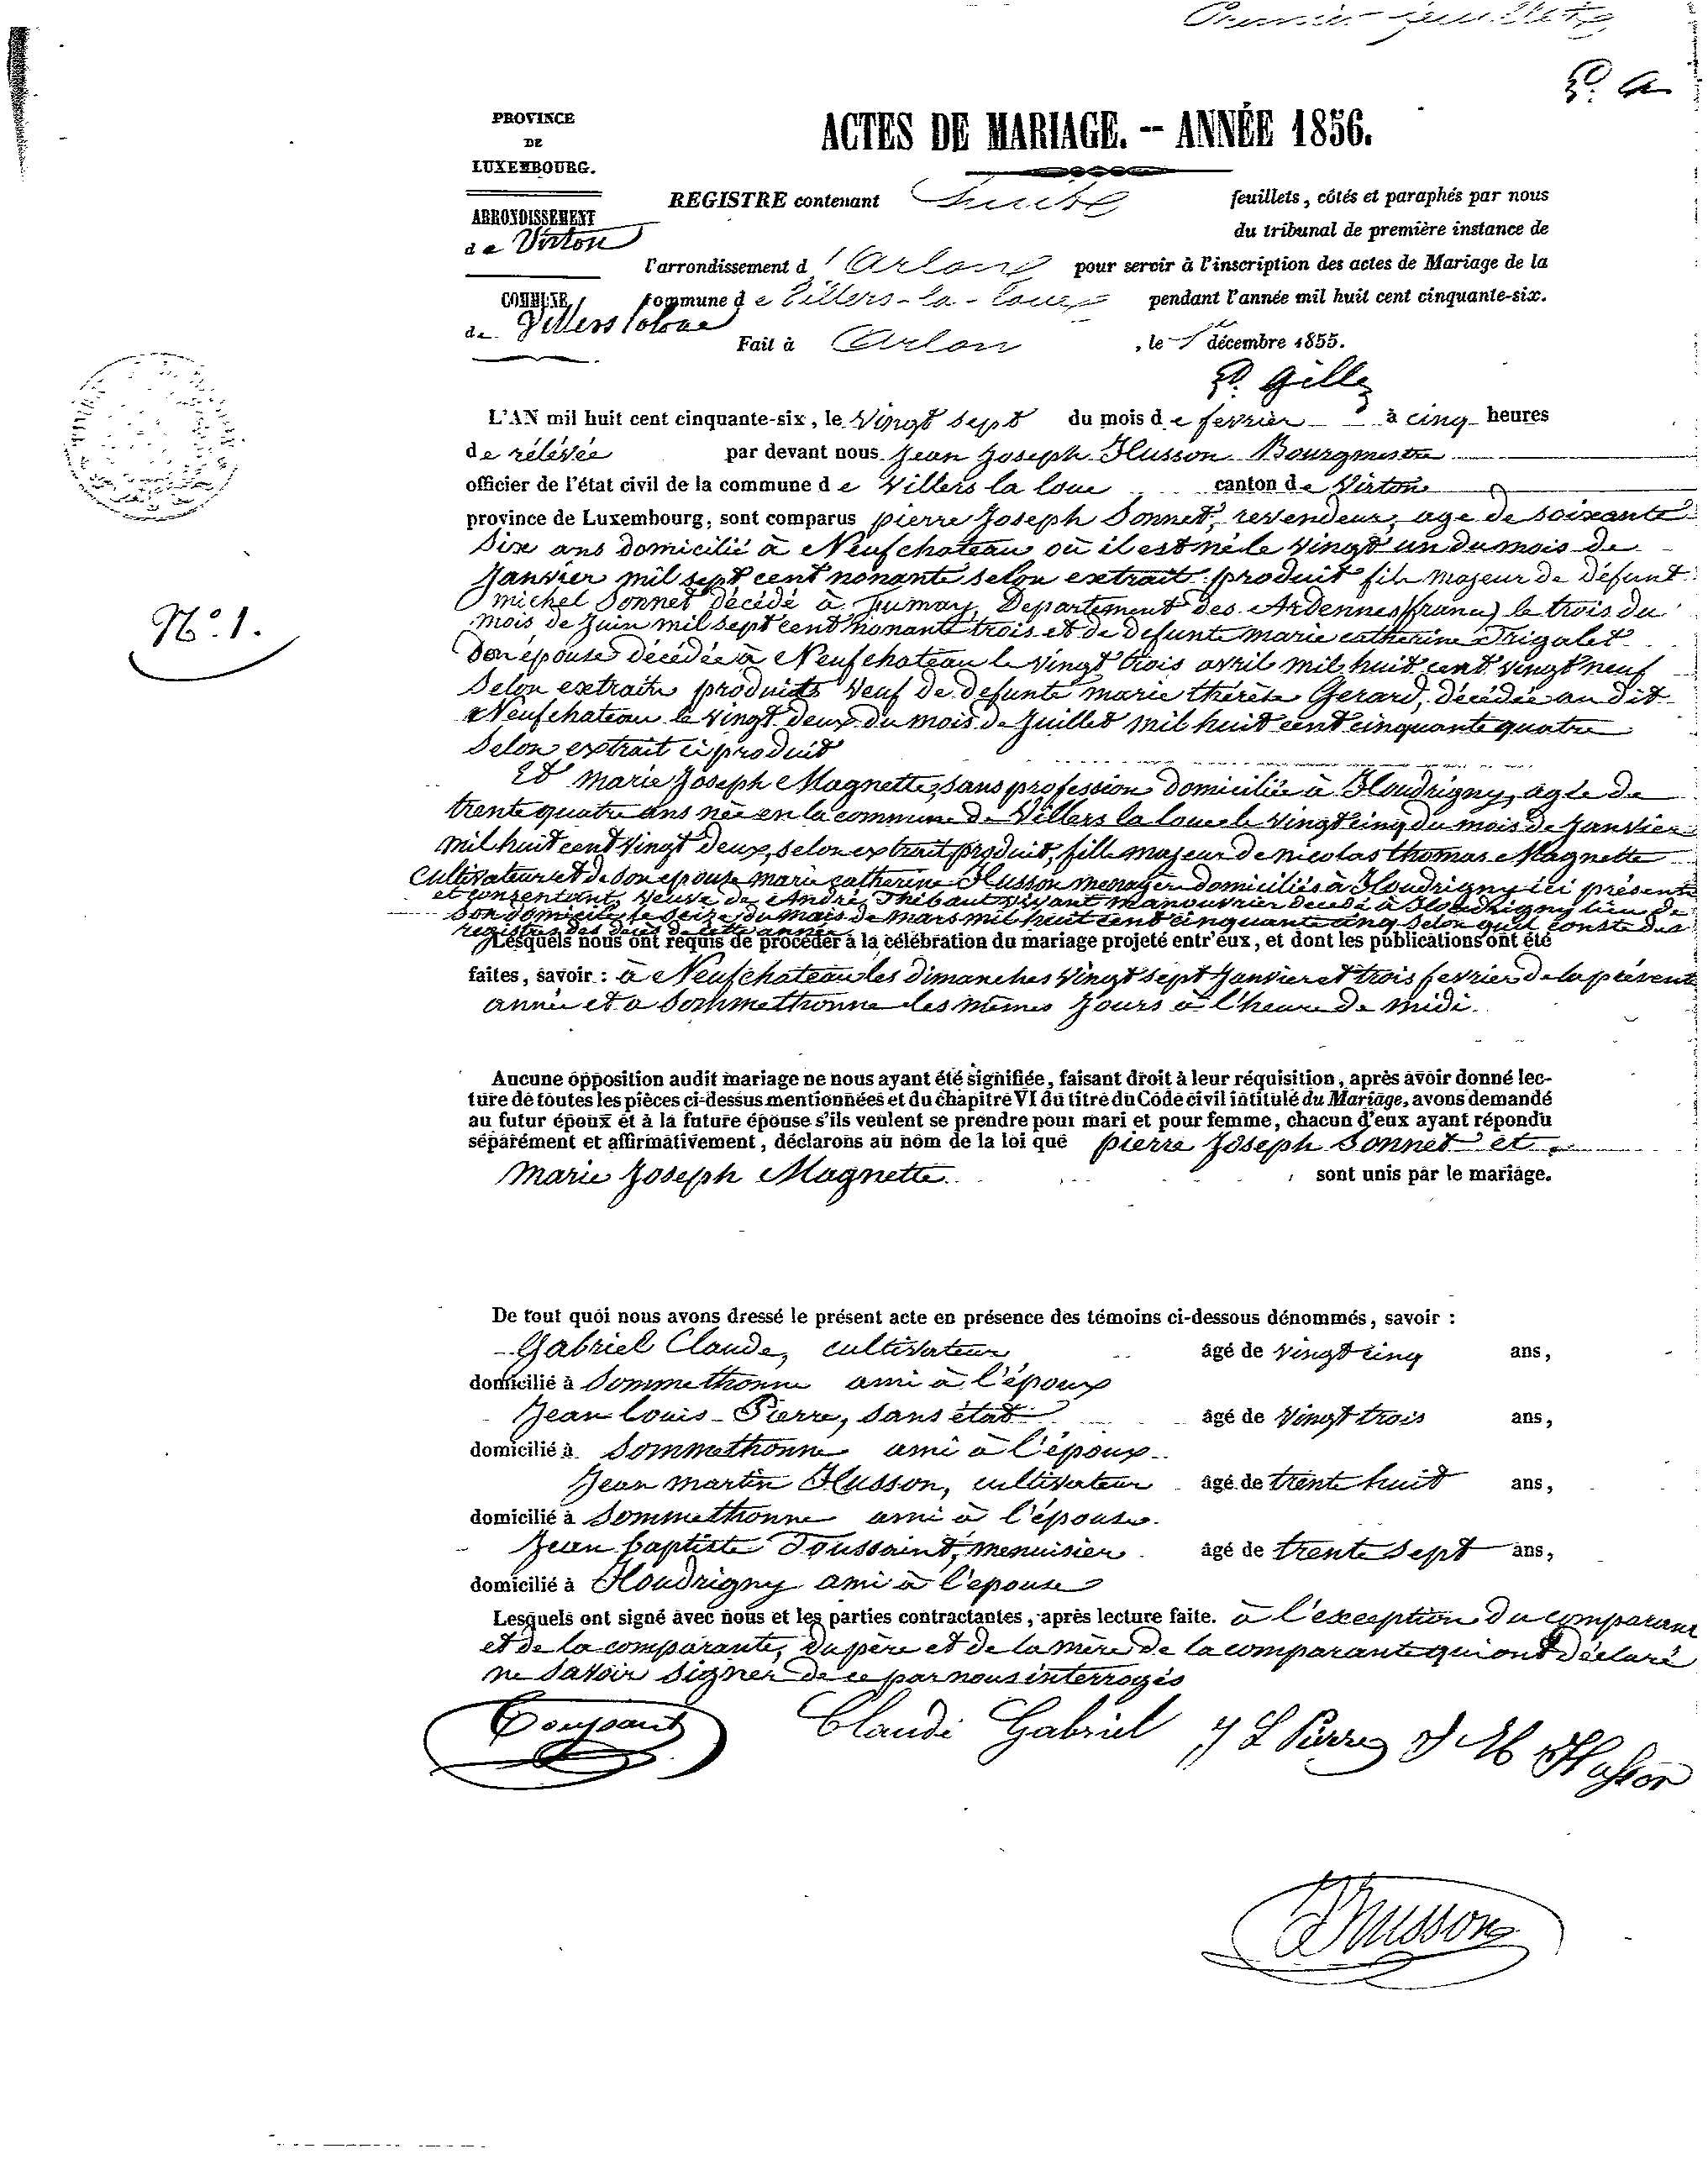 Premier feuillet
P. G
PROVINCE
DE
LUXEMBOURG.
ARRONDISSEMENT
de Virton
COMMUNE
de Villers laloue
ACTES DE MARIAGE. -- ANNÉE 1856.
REGISTRE contenant huit feuillets, côtés et paraphés par nous
du tribunal de première instance de
l'arrondissement d'Arlon pour servir à l'inscription des actes de Mariage de la
commune de Villers-la-Loue pendant l'année mil huit cent cinquante-six.
Fait à Arlon, le 1er décembre 1855.
P. Gilles
N° 1.
L'AN mil huit cent cinquante-six, le vingt sept du mois de fevrier à cinq heures
de rélévée par devant nous Jean Joseph Husson Bourgmestre
officier de l'état civil de la commune de Villers la loue canton de Virton
province de Luxembourg, sont comparus pierre Joseph Sonnet, revendeur, age de soixante
six ans domicilié à Neufchateau où il est né le vingt un du mois de
Janvier mil sept cent nonante selon extrait produit fils majeur de défunt
michel Sonnet décédé à fumay, Departement des Ardennes (france) le trois du
mois de Juin mil sept cent nonante trois et de defunte marie catherine Trigalet
son épouse décédée à Neufchateau le vingt trois avril mil huit cent vingt neuf
selon extraits produits veuf de defunte marie thérèse Gerard, décédée au dit
Neufchateau le vingt deux du mois de Juillet mil huit cent cinquante quatre
selon extrait ci produit
Et marie Joseph Magnette, sans profession domiciliée à Houdrigny, agée de
trente quatre ans née en la commune de Villers la loue le vingt cinq du mois de Janvier
mil huit cent vingt deux, selon extrait produit, fille majeur de nicolas thomas Magnette
cultivateur et de son epouse marie catherine Husson menagère domiciliés à Houdrigny ici présents
et consentant, veuve de André Thibaut vivant manouvrier decedé à Houdrigny lieu de
son domicile le seize du mois de mars mil huit cent cinquante cinq selon qu'il conste des
registres des décès de cette année
Lesquels nous ont requis de procéder à la célébration du mariage projeté entr'eux, et dont les publications ont été
faites, savoir : à Neufchateau les dimanches vingt sept Janvier et trois fevrier de la présente
année et a Sommethonne les mêmes Jours à l'heure de midi.
Aucune opposition audit mariage ne nous ayant été signifiée, faisant droit à leur réquisition, après avoir donné lec-
ture de toutes les pièces ci-dessus mentionnées et du chapitre VI du titre du Code civil intitulé du Mariage, avons demandé
au futur époux et à la future épouse s'ils veulent se prendre pour mari et pour femme, chacun d'eux ayant répondu
séparément et affirmativement, déclarons au nom de la loi que pierre Joseph Sonnet et
marie Joseph Magnette sont unis par le mariage.
De tout quoi nous avons dressé le présent acte en présence des témoins ci-dessous dénommés, savoir :
Gabriel Claude, cultivateur âgé de vingt cinq ans,
domicilié à Sommethonne ami à l'époux
Jean Louis Pierre, sans état âgé de vingt trois ans,
domicilié à Sommethonne ami à l'époux
Jean martin Husson, cultivateur âgé de trente huit ans,
domicilié à Sommethonne ami à l'épouse
Jean baptiste Toussaint, menuisier âgé de trente sept ans,
domicilié à Houdrigny ami à l'epouse
Lesquels ont signé avec nous et les parties contractantes, après lecture faite. à l'exception du comparant
et de la comparante, du père et de la mère de la comparante qui ont déclaré
ne savoir signer de ce par nous interrogés
Toussaint Claude Gabriel J L Pierre J M Husson
JHusson